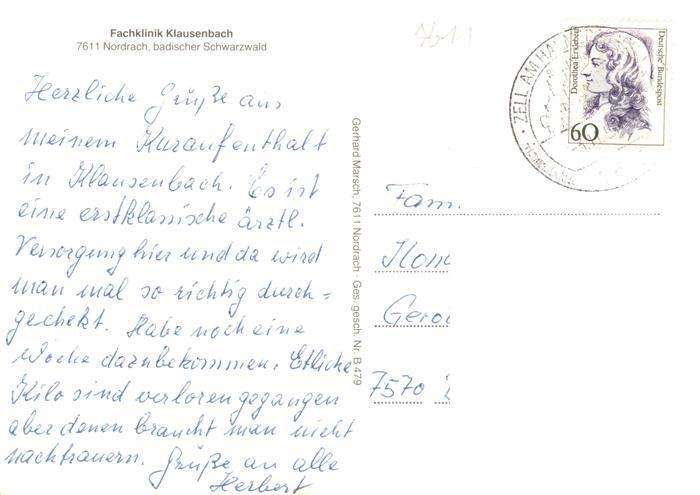 Fachklinik Klausenbach
7611 Nordrach, badischer Schwarzwald
7611
Herzliche Grüße aus
meinem Kuraufenthalt
in Klausenbach. Es ist
eine erstklassische ärztl.
Versorgung hier und da wird
man mal so richtig durch=
gechekt. Habe noch eine
Woche dazubekommen. Etliche
Kilo sind verloren gegangen
aber denen braucht man nicht
nachtrauern. Grüße an alle
Herbert
Gerhard Marsch, 7611 Nordrach · Ges. gesch. Nr. B 479
Deutsche Bundespost
Dorothea Erxleben
60
ZELL AM HA
Fam.
7570